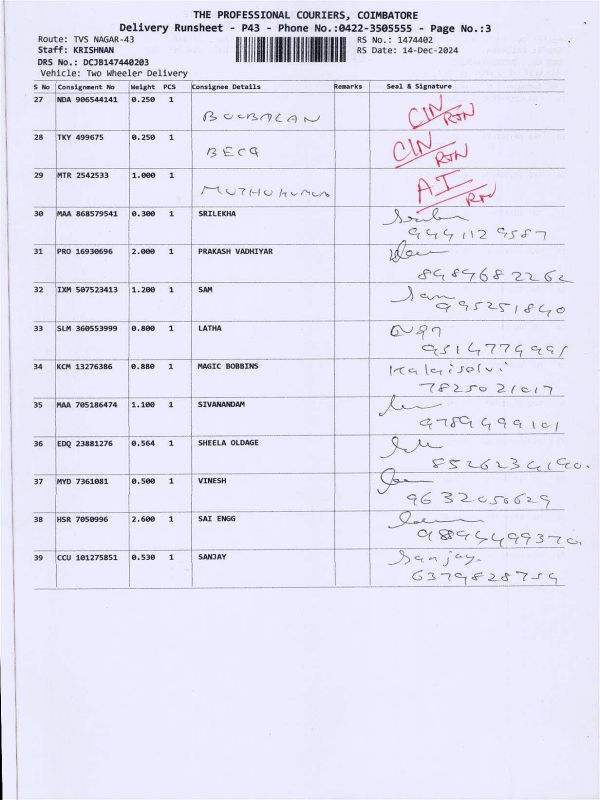 THE PROFESSIONAL COURIERS, COIMBATORE
Delivery Runsheet - P43 - Phone No.:0422-3505555 - Page No.:3
Route: TVS NAGAR-43 RS No.: 1474402
Staff: KRISHNAN RS Date: 14-Dec-2024
DRS No.: DCJB147440203
Vehicle: Two Wheeler Delivery
S No Consignment No Weight PCS Consignee Details Remarks Seal & Signature
27 NDA 906544141 0.250 1 CIN RTN
28 TKY 499675 0.250 1 CIN RTN
BECG
29 MTR 2542533 1.000 1 AI RTN
30 MAA 868579541 0.300 1 SRILEKHA
9441129587
31 PRO 16930696 2.000 1 PRAKASH VADHIYAR
8489682262
32 IXM 507523413 1.200 1 SAM Sam
995251840
33 SLM 360553999 0.800 1 LATHA
9514774991
34 KCM 13276386 0.880 1 MAGIC BOBBINS Kalaiselvi
7825021017
35 MAA 705186474 1.100 1 SIVANANDAM
9789499101
36 EDQ 23881276 0.564 1 SHEELA OLDAGE
8526234190.
37 MYD 7361081 0.500 1 VINESH
9632050629
38 HSR 7050996 2.600 1 SAI ENGG
9894499370
39 CCU 101275851 0.530 1 SANJAY Sanjay.
6379828759